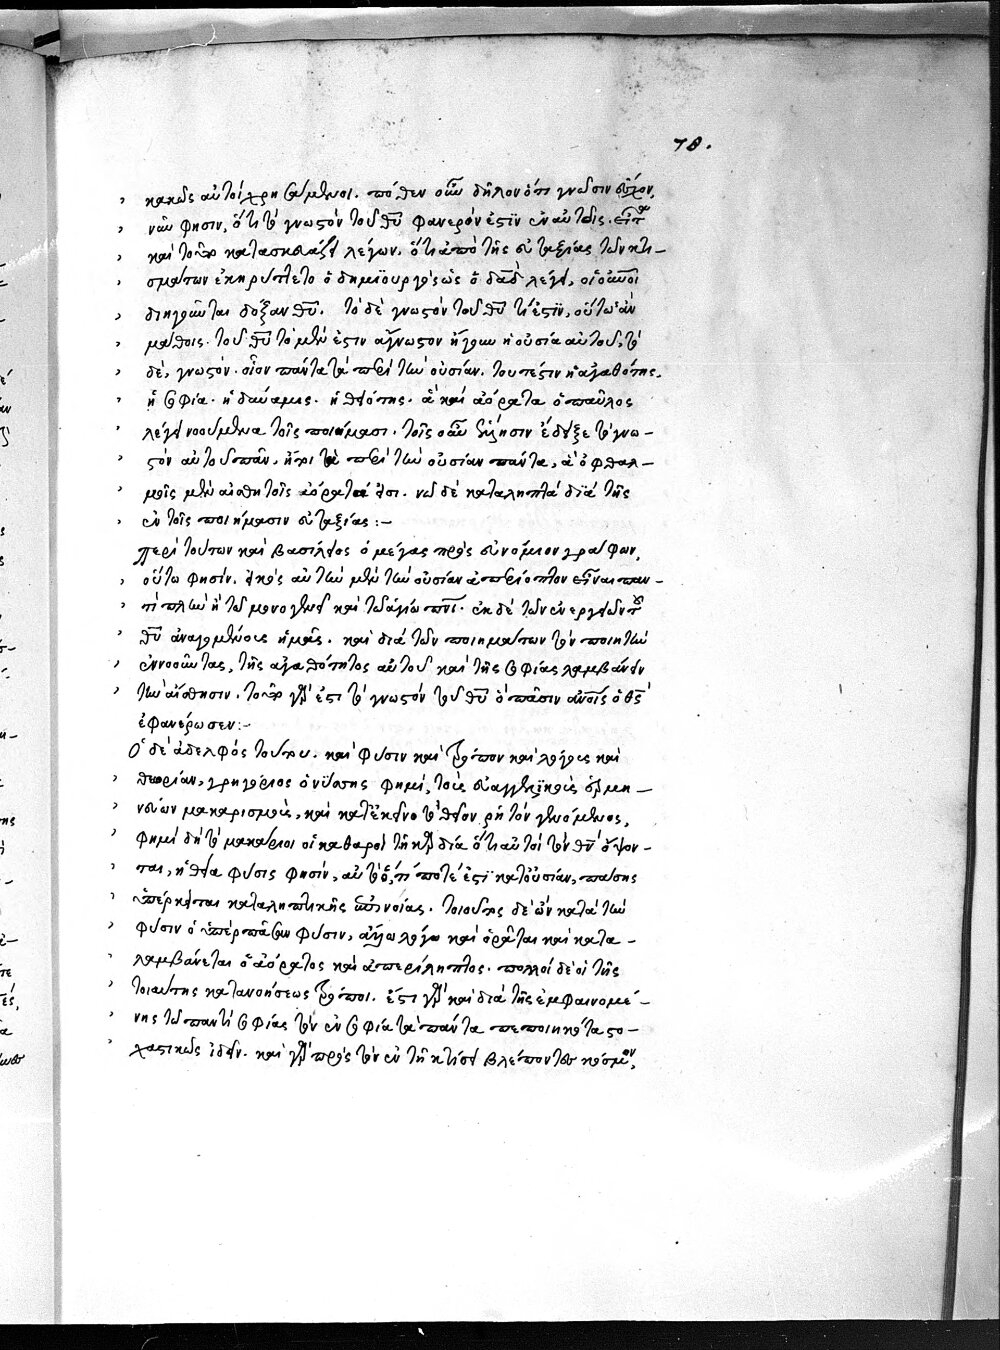 78.
κακῶς αὐτοὶ χρησάμενοι. πόθεν οὖν δῆλον ὅτι γνῶσιν εἶχον,
νῦν φησιν, ὅτι τὸ γνωστὸν τοῦ θῦ φανερόν ἐστιν ἐν αὐτοῖς.
καὶ τοῦτο κατασκευάζει λέγων, ὅτι ἀπὸ τῆς εὐταξίας τῶν κτι-
σμάτων ἐκηρύττετο ὁ δημιουργὸς ὡς ὁ δαδ λέγει, οἱ οὐνοὶ
διηγοῦνται δόξαν θῦ. τὸ δὲ γνωστὸν τοῦ θῦ τί ἐστιν, οὕτως ἂν
μάθοις. τοῦ θῦ τὸ μέν ἐστιν ἄγνωστον ἤγουν ἡ οὐσία αὐτοῦ, τὸ
δὲ, γνωστόν. οἷον πάντα τὰ περὶ τὴν οὐσίαν. τουτέστιν ἡ ἀγαθότης.
ἡ σοφία. ἡ δύναμις. ἡ θειότης. ἃ καὶ ἀόρατα ὁ παῦλος
λέγει νοούμενα τοῖς ποιήμασι. τοῖς οὖν ἕλλησιν ἔδειξε τὸ γνω-
στὸν αὐτοῦ πᾶν, ἤτοι τὰ περὶ τὴν οὐσίαν πάντα, ἃ ὀφθαλ-
μοῖς μὲν αἰσθητοῖς ἀόρατά εἰσι. νῷ δὲ καταληπτὰ διὰ τῆς
ἐν τοῖς ποιήμασιν εὐταξίας :-
περὶ τούτων καὶ βασίλειος ὁ μέγας πρὸς εὐνόμιον γράφων,
οὕτω φησίν. εἰκὸς αὐτὴν μὲν τὴν οὐσίαν ἀπερίοπτον εἶναι παν-
τὶ πλὴν ἢ τῷ μονογενεῖ καὶ τῷ ἁγίῳ πνι. ἐκ δὲ τῶν ἐνεργειῶν τοῦ
θῦ ἀναγομένους ἡμᾶς. καὶ διὰ τῶν ποιημάτων τὸν ποιητὴν
ἐννοοῦντας, τῆς ἀγαθότητος αὐτοῦ καὶ τῆς σοφίας λαμβάνειν
τὴν αἴσθησιν. τοῦτο γάρ ἐστι τὸ γνωστὸν τοῦ θῦ ὃ πᾶσιν ἀνοις ὁ θς
ἐφανέρωσεν :-
Ὁ δὲ ἀδελφὸς τούτου. καὶ φύσιν καὶ τρόπον καὶ λόγους καὶ
θεωρίαν, γρηγόριος ὁ νύσσης φημί, τοὺς εὐαγγελικοὺς ἑρμη-
νεύων μακαρισμούς, καὶ κατ' ἐκεῖνο τὸ θεῖον ῥητὸν γενόμενος,
φημὶ δὴ τὸ μακάριοι οἱ καθαροὶ τῇ καρδίᾳ ὅτι αὐτοὶ τὸν θν ὄψον-
ται, ἡ θεία φύσις φησίν, αὐτὸ ὅ, τί ποτέ ἐστι κατ' οὐσίαν, πάσης
ὑπέρκειται καταληπτικῆς ἐπινοίας. τοιοῦτος δὲ ὢν κατὰ τὴν
φύσιν ὁ ὑπὲρ πᾶσαν φύσιν, ἄλλῳ λόγῳ καὶ ὁρᾶται καὶ κατα-
λαμβάνεται ὁ ἀόρατος καὶ ἀπερίληπτος. πολλοὶ δὲ οἱ τῆς
τοιαύτης κατανοήσεως τρόποι. ἔστι γὰρ καὶ διὰ τῆς ἐμφαινομέ-
νης τῷ παντὶ σοφίας τὸν ἐν σοφίᾳ τὰ πάντα πεποιηκότα στο-
χαστικῶς ἰδεῖν. καὶ γὰρ πρὸς τὸν ἐν τῇ κτίσει βλέποντες κόσμον,